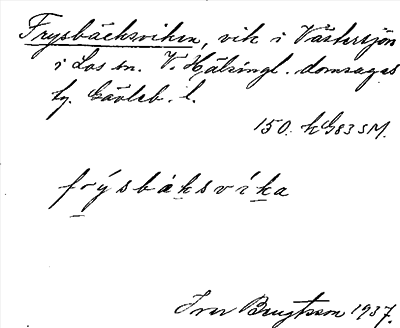 Frysbäcksviken, vik i Västersjön
i Los sn. V. Hälsingl. domsagas
tg. Gävleb. l.
150. hG83SM.
frysbäksvika
Ivar Bengtsson 1937.